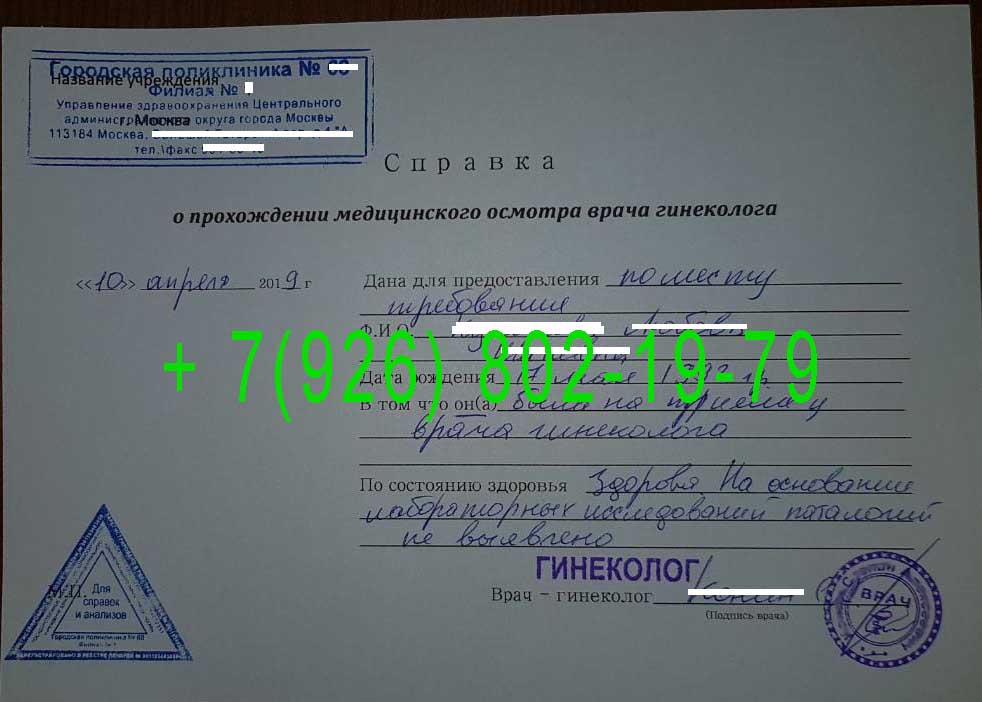 Городская поликлиника №
Название учреждения
Филиал №
Управление здравоохранения Центрального
административного округа города Москвы
г. Москва
113184 Москва,
тел.\факс
Справка
о прохождении медицинского осмотра врача гинеколога
«10» апреля 2019 г
Дана для предоставления по месту
требования
Ф.И.О. Любовь
+ 7(926) 802-19-79
Дата рождения 17 мая 1992 гр
В том что он(а) была на приёма у
врача гинеколога
По состоянию здоровья Здоровья На основание
лабораторных исследований паталогий
не выявлено
ГИНЕКОЛОГ
Врач – гинеколог
(Подпись врача)
М.П.
Для
справок
и анализов
Городская поликлиника № 68
Филиал № 1
ВРАЧ